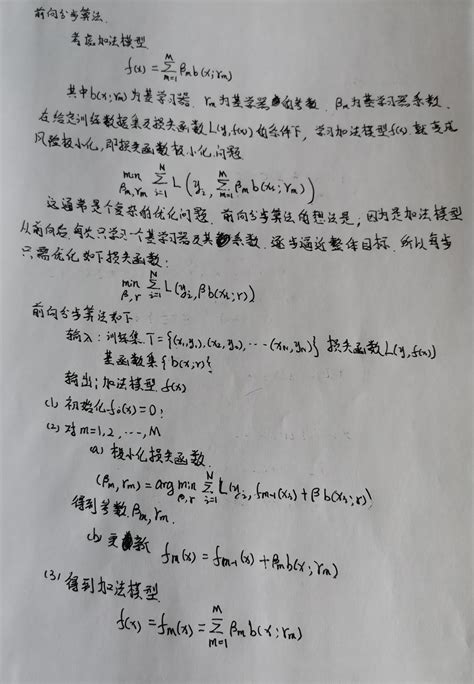 前向分步算法.
考虑加法模型
f(x) = Σ_{m=1}^{M} β_m b(x; r_m)
其中b(x; r_m)为基学习器. r_m为基学习器的参数. β_m为基学习器系数.
在给定训练数据集及损失函数L(y, f(x))的条件下, 学习加法模型f(x)就变成
风险极小化, 即损失函数极小化问题.
min_{β_m, r_m} Σ_{i=1}^{N} L(y_i, Σ_{m=1}^{M} β_m b(x_i; r_m))
这通常是个复杂的优化问题. 前向分步算法的想法是, 因为是加法模型
从前向后每次只学习一个基学习器及其系数. 逐步逼近整体目标. 所以每步
只需优化如下损失函数:
min_{β, r} Σ_{i=1}^{N} L(y_i, β b(x_i; r))
前向分步算法如下
输入: 训练集 T = {(x_1, y_1), (x_2, y_2), ... (x_N, y_N)} 损失函数L(y, f(x))
基函数集{b(x; r)}
输出; 加法模型 f(x)
(1) 初始化 f_0(x) = 0;
(2) 对 m=1,2,...,M
(a) 极小化损失函数
(β_m, r_m) = arg min_{β, r} Σ_{i=1}^{N} L(y_i, f_{m-1}(x_i) + β b(x_i; r))
得到参数 β_m, r_m.
(b) 更新 f_m(x) = f_{m-1}(x) + β_m b(x; r_m)
(3) 得到加法模型
f(x) = f_M(x) = Σ_{m=1}^{M} β_m b(x; r_m)